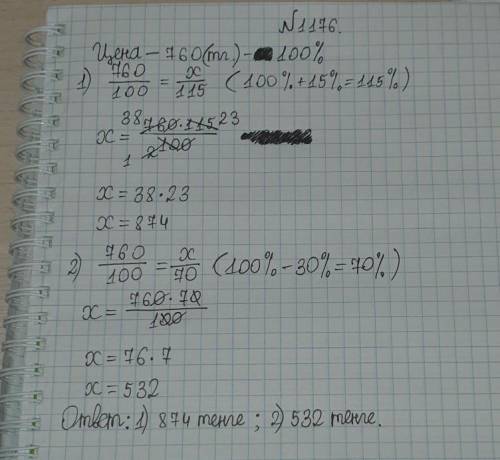 №1176.
Цена – 760(тг.) – 100%
1) 760/100 = x/115 (100%+15%=115%)
x = 38 760·115 23 / 1 2 100
x = 38·23
x = 874
2) 760/100 = x/70 (100%–30%=70%)
x = 760·70 / 100
x = 76·7
x = 532
Ответ: 1) 874 тенге ; 2) 532 тенге.